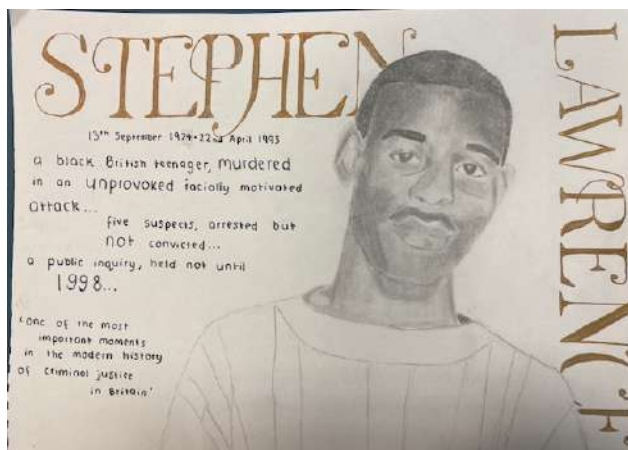 STEPHEN
LAWRENCE
13th September 1974-22nd April 1993
a black British teenager, murdered
in an unprovoked racially motivated
attack...
five suspects, arrested but
not convicted...
a public inquiry, held not until
1998...
'one of the most
important moments
in the modern history
of criminal justice
in Britain'